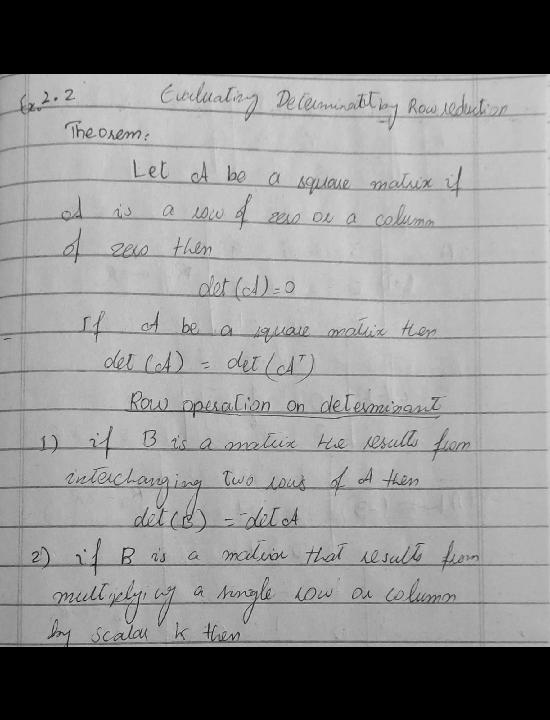 Ex. 2.2 Evaluating Determinant by Row reduction
Theorem:
Let A be a square matrix if
A is a row of zero or a column
of zero then
det (A) = 0
If A be a square matrix then
det (A) = det (Aᵀ)
Row operation on determinant
1) if B is a matrix the results from
interchanging two rows of A then
det (B) = -det A
2) if B is a matrix that results from
multiplying a single row or column
by scalar k then